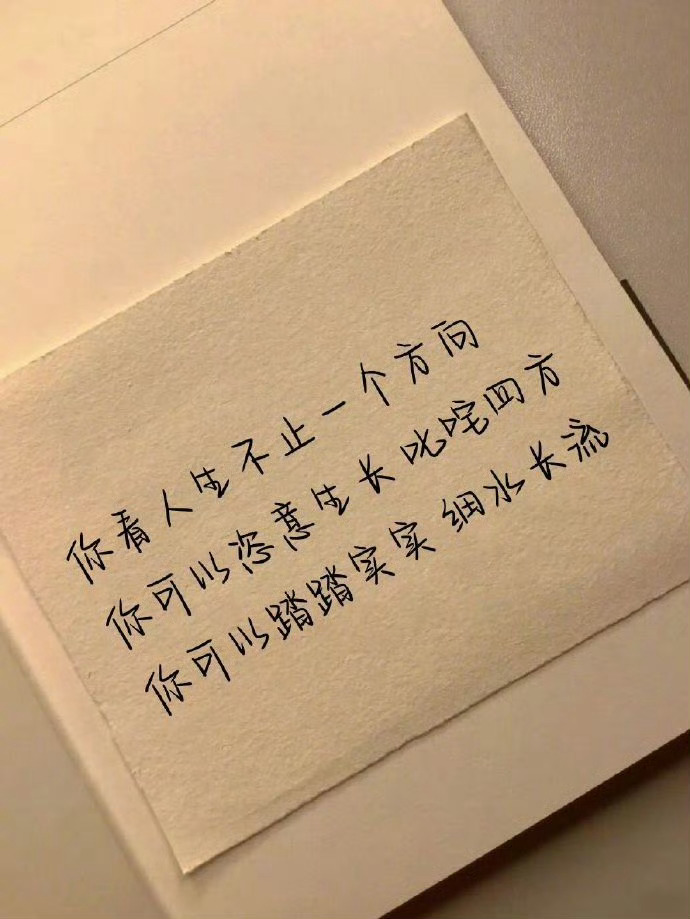 你看人生不止一个方向
你可以恣意生长 叱咤四方
你可以踏踏实实 细水长流